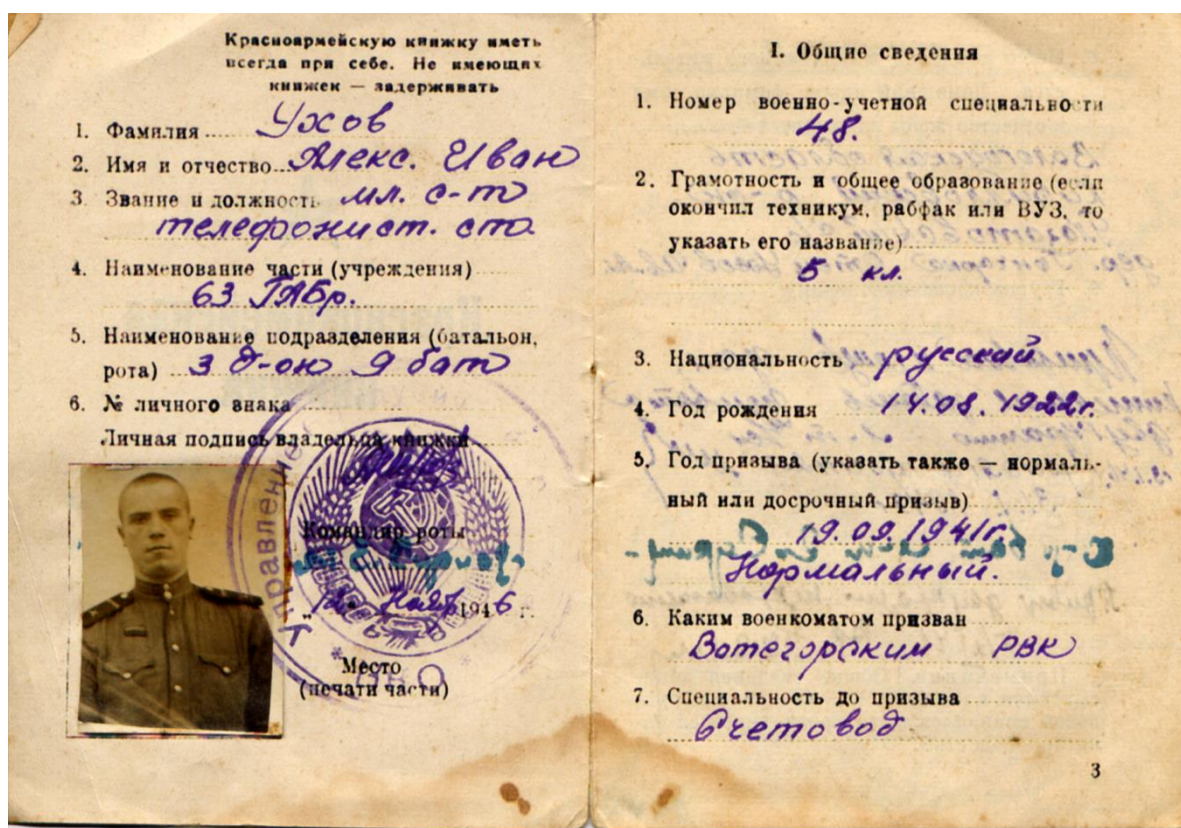 Красноармейскую книжку иметь
всегда при себе. Не имеющих
книжек — задерживать
1. Фамилия Ухов
2. Имя и отчество Алекс. Иван
3. Звание и должность мл. с-т
телефонист. ст.
4. Наименование части (учреждения)
63 ГАБр.
5. Наименование подразделения (батальон,
рота) 3 д-он 9 бат
6. № личного знака
Личная подпись владельца книжки
Командир роты
12 1946 г.
Место
(печати части)
I. Общие сведения
1. Номер военно-учетной специальности
48.
2. Грамотность и общее образование (если
окончил техникум, рабфак или ВУЗ, то
указать его название)
5 кл.
3. Национальность русский
4. Год рождения 14.08.1922г.
5. Год призыва (указать также — нормаль-
ный или досрочный призыв)
19.09.1941г.
Нормальный.
6. Каким военкоматом призван
РВК
7. Специальность до призыва
Счетовод
3